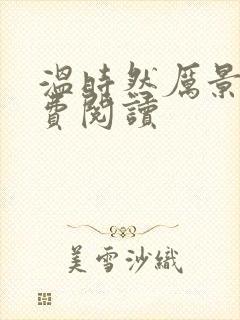 温時然厲景
費閱讀
美雪沙織